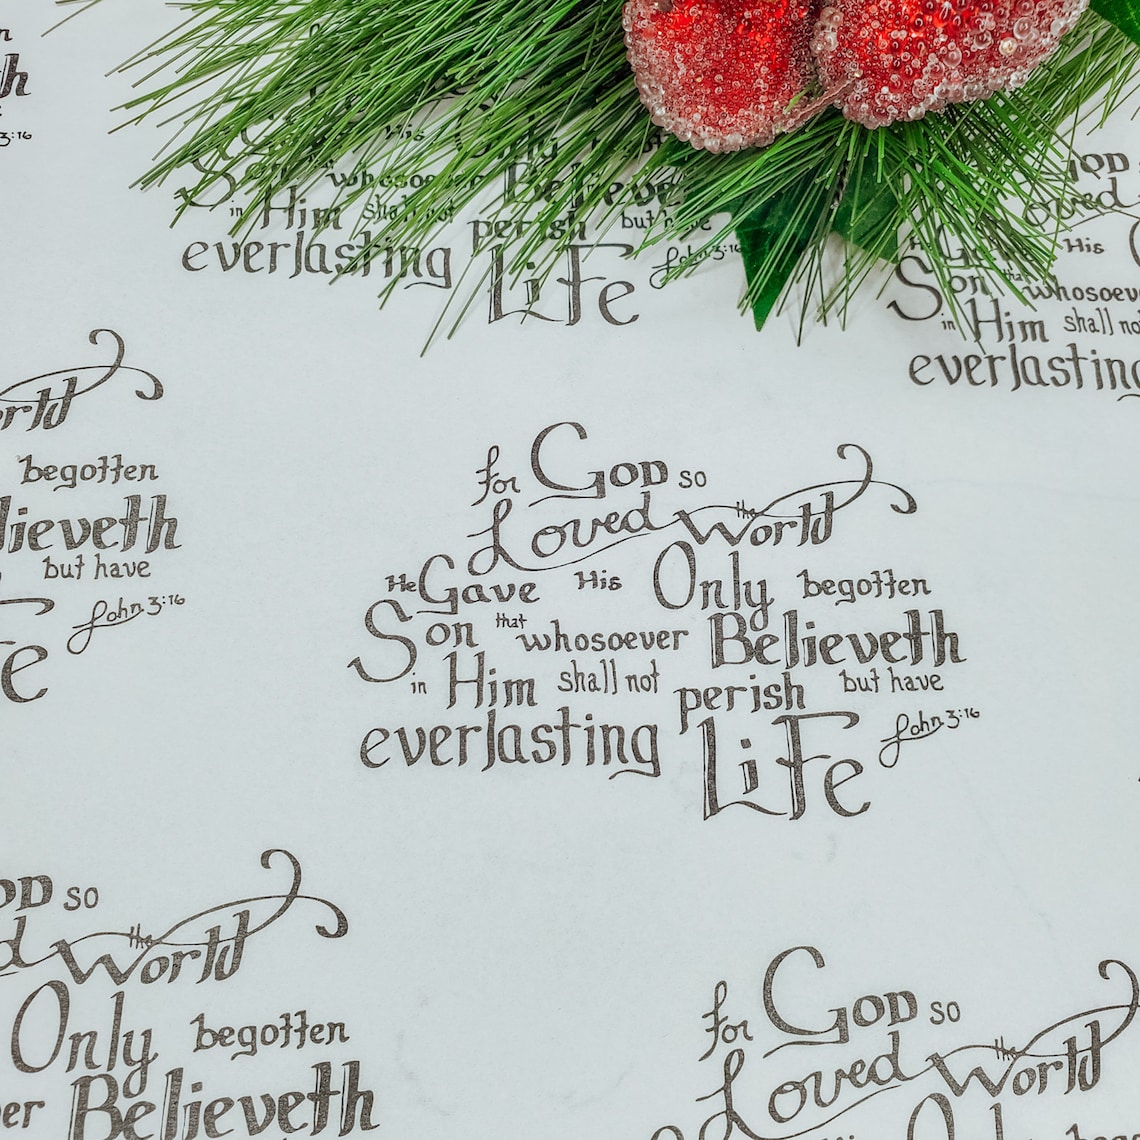 n
th
3:16
His Only
Son whosoever Believe
in Him shall not perish but have
everlasting Life John 3:16
God
Loved
Gave His
Son that whosoeve
in Him shall not
everlasting
World
begotten
lieveth
but have
John 3:16
fe
for God so
Loved the World
He Gave His Only begotten
Son that whosoever Believeth
in Him shall not perish but have
everlasting Life John 3:16
od so
d the World
Only begotten
er Believeth
for God so
Loved the World